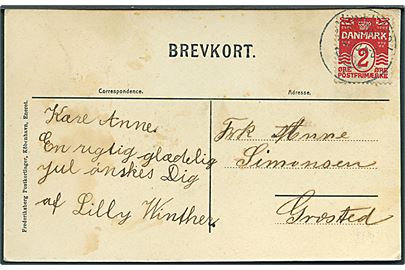 BREVKORT.
DANMARK
2
ØRE ØRE
POSTFRIMÆRKE
Correspondence.
Adresse.
Kære Anne.
En rigtig glædelig
Jul ønskes Dig
af Lilly Winther.
Frk Anne
Simonsen
Græsted
Frederiksberg Postkortlager, København, Eneret.